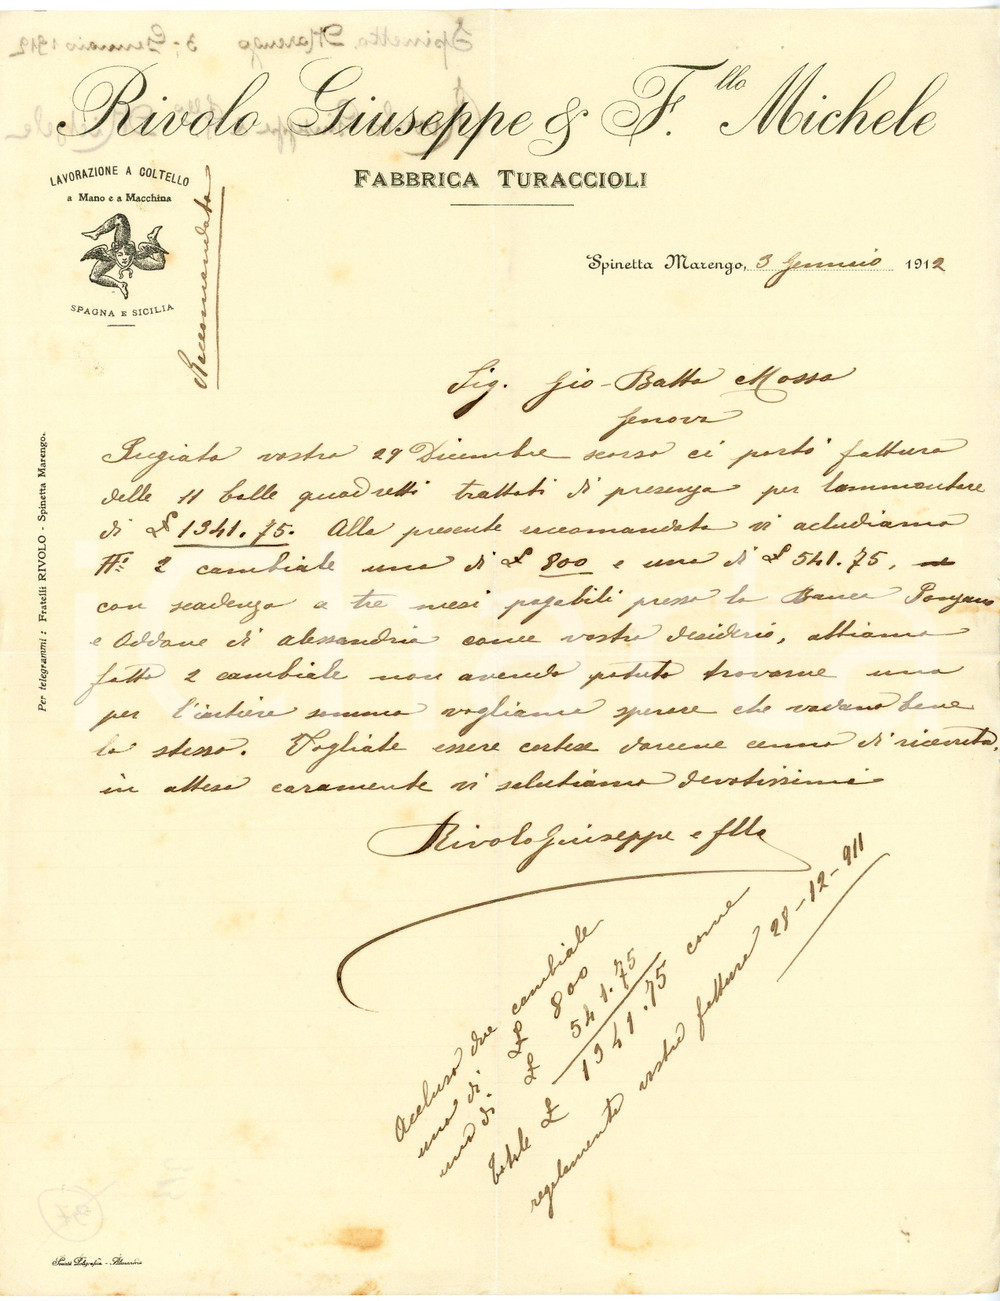 Rivolo Giuseppe & F.llo Michele
FABBRICA TURACCIOLI
LAVORAZIONE A COLTELLO
a Mano e a Macchina
SPAGNA E SICILIA
Raccomandata
Spinetta Marengo, 3 Gennaio 1912
Sig. Gio-Batta Mossa
Genova
Pregiata vostra 29 Dicembre scorso ci portò fattura
delle 11 balle quadretti trattati di presenza per lammontare
di £ 1341.75. Alla presente raccomandata vi acludiamo
N° 2 cambiale una di £ 800 e una di £ 541.75,
con scadenza a tre mesi pagabili presso la Banca Ponzano
e Oddone di Alessandria come vostro desiderio, abbiamo
fatto 2 cambiale non avendo potuto trovarne una
per l'intiere somma vogliamo sperare che vadano bene
lo stesso. Vogliate essere cortese darcene cenno di ricevuta,
in attesa caramente vi salutiamo devotissimi
Rivolo Giuseppe e fllo
Accluso due cambiale
una di £ 800
una di £ 541.75
totale £ 1341.75 come
regolamento vostra fattura 28-12-911
Per telegrammi: Fratelli RIVOLO - Spinetta Marengo.
Società Poligrafica - Alessandria